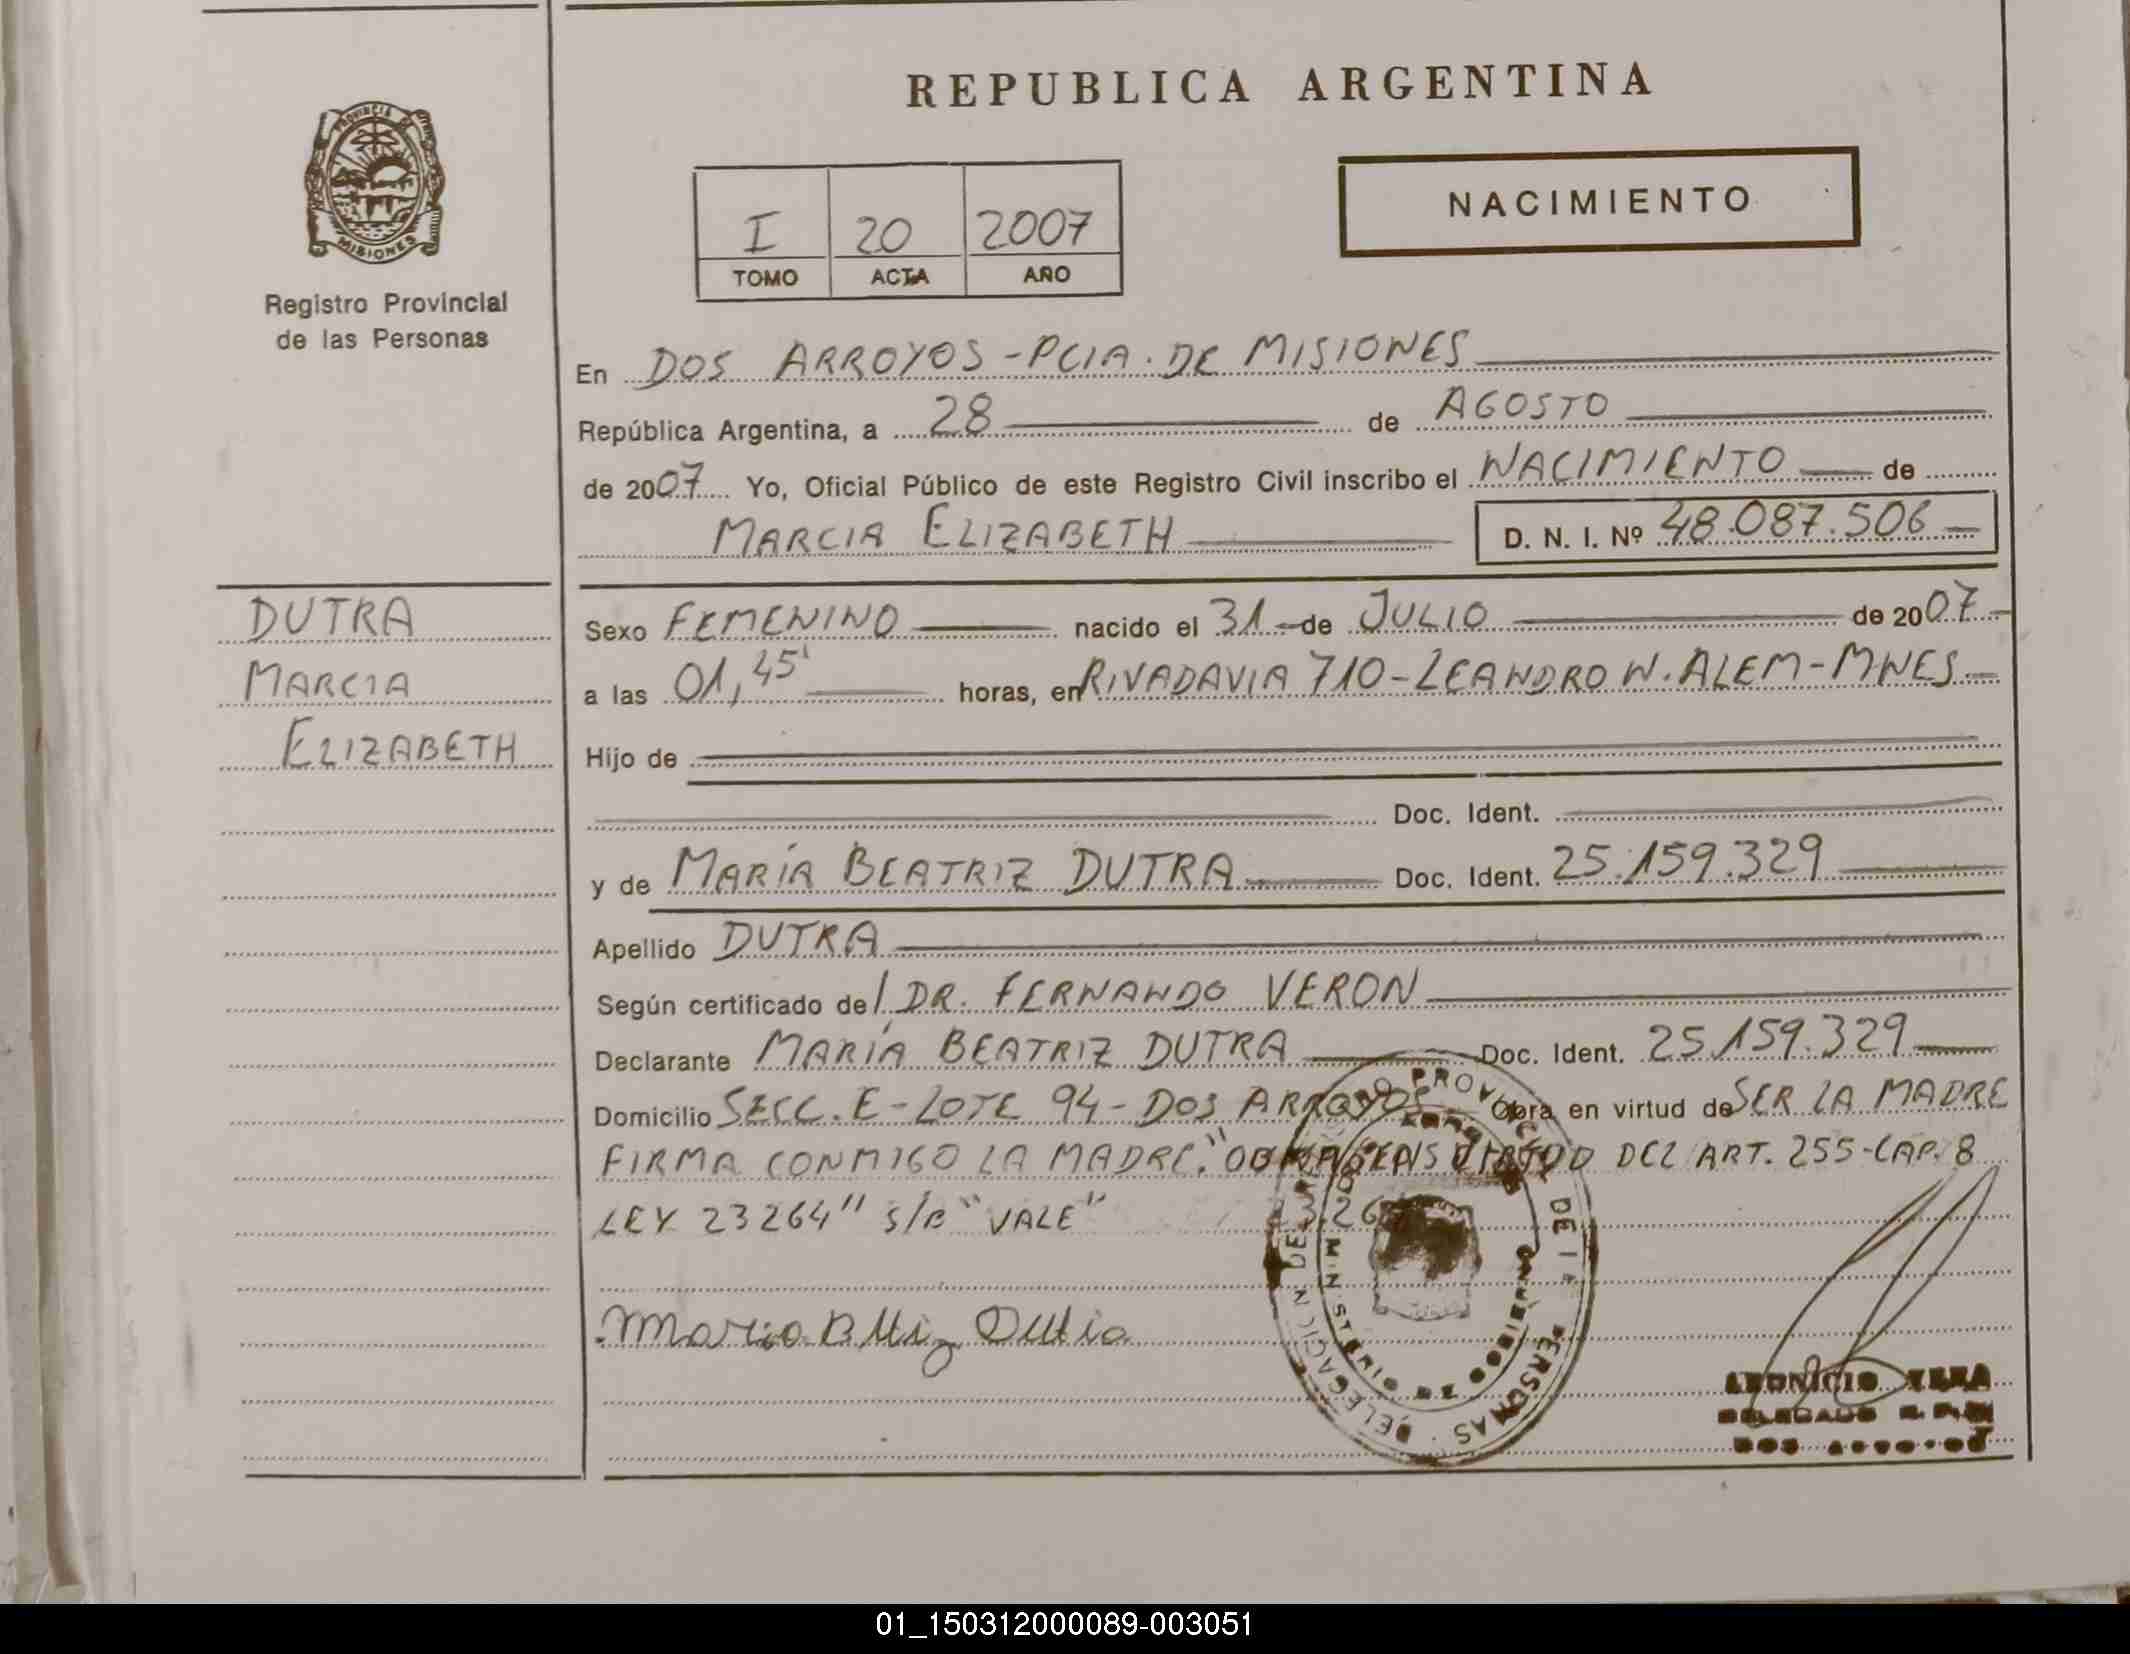 REPUBLICA ARGENTINA
PROVINCIA DE
MISIONES
Registro Provincial
de las Personas
I 20 2007
TOMO ACTA AÑO
NACIMIENTO
En DOS ARROYOS - PCIA. DE MISIONES
República Argentina, a 28 de AGOSTO
de 2007 Yo, Oficial Público de este Registro Civil inscribo el NACIMIENTO de
MARCIA ELIZABETH D. N. I. Nº 48.087.506
DUTRA
MARCIA
ELIZABETH
Sexo FEMENINO nacido el 31 de JULIO de 2007
a las 01,45' horas, en RIVADAVIA 710 - LEANDRO N. ALEM - MNES
Hijo de
Doc. Ident.
y de MARÍA BEATRIZ DUTRA Doc. Ident. 25.159.329
Apellido DUTRA
Según certificado del DR. FERNANDO VERON
Declarante MARÍA BEATRIZ DUTRA Doc. Ident. 25.159.329
Domicilio SECC. E - LOTE 94 - DOS ARROYOS Obra en virtud de SER LA MADRE
FIRMA CONMIGO LA MADRE. "OBRA EN VIRTUD DEL ART. 255-CAP. 8
LEY 23264" S/R "VALE"
DELEGACION DE PROV DE PERSONAS
MINISTERIO DE
DELEGADO
01_150312000089-003051